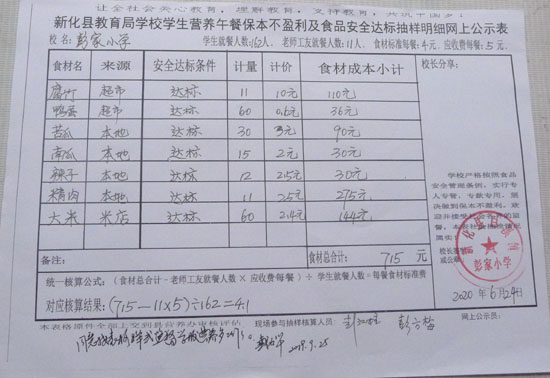 让全社会关心教育，理解教育，支持教育，共筑中国梦！
新化县教育局学校学生营养午餐保本不盈利及食品安全达标抽样明细网上公示表
校名：彭家小学 学生就餐人数：162人、老师工友就餐人数：11人、食材标准每餐：4元、应收费每餐：5元
食材名 来源 安全达标条件 计量 计价 食材成本小计 校长分享：
腐竹 超市 达标 11 10元 110元
鸭蛋 超市 达标 60 0.6元 36元
苦瓜 本地 达标 30 3元 90元
南瓜 本地 达标 15 2元 30元
辣子 本地 达标 12 2.5元 30元
精肉 本地 达标 11 25元 275元
大米 米店 达标 60 2.4元 144元
学校严格按照食品
安全管理条例，实行专
人专管，专款专用，坚
决做到保本不盈利，欢
迎并接受社会各界的监
督。
校长签
或公章
彭家小学
2020年6月24日
备注： 食材总合计： 715元
统一核算公式：（食材总合计－老师工友就餐人数×应收费每餐）÷学生就餐人数＝每餐食材标准费
对应核算结果：(715－11×5)÷162=4.1
现场参与抽样核算人员： 网上公示员：
2019.9.25